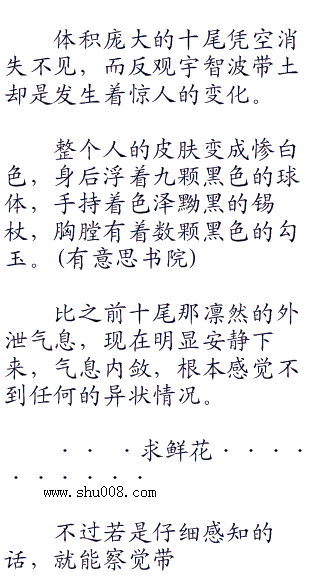 体积庞大的十尾凭空消
失不见，而反观宇智波带土
却是发生着惊人的变化。
整个人的皮肤变成惨白
色，身后浮着九颗黑色的球
体，手持着色泽黝黑的锡
杖，胸膛有着数颗黑色的勾
玉。(有意思书院)
比之前十尾那凛然的外
泄气息，现在明显安静下
来，气息内敛，根本感觉不
到任何的异状情况。
· · ·求鲜花· · · ·
· · · · · ·
www.shu008.com
不过若是仔细感知的
话，就能察觉带